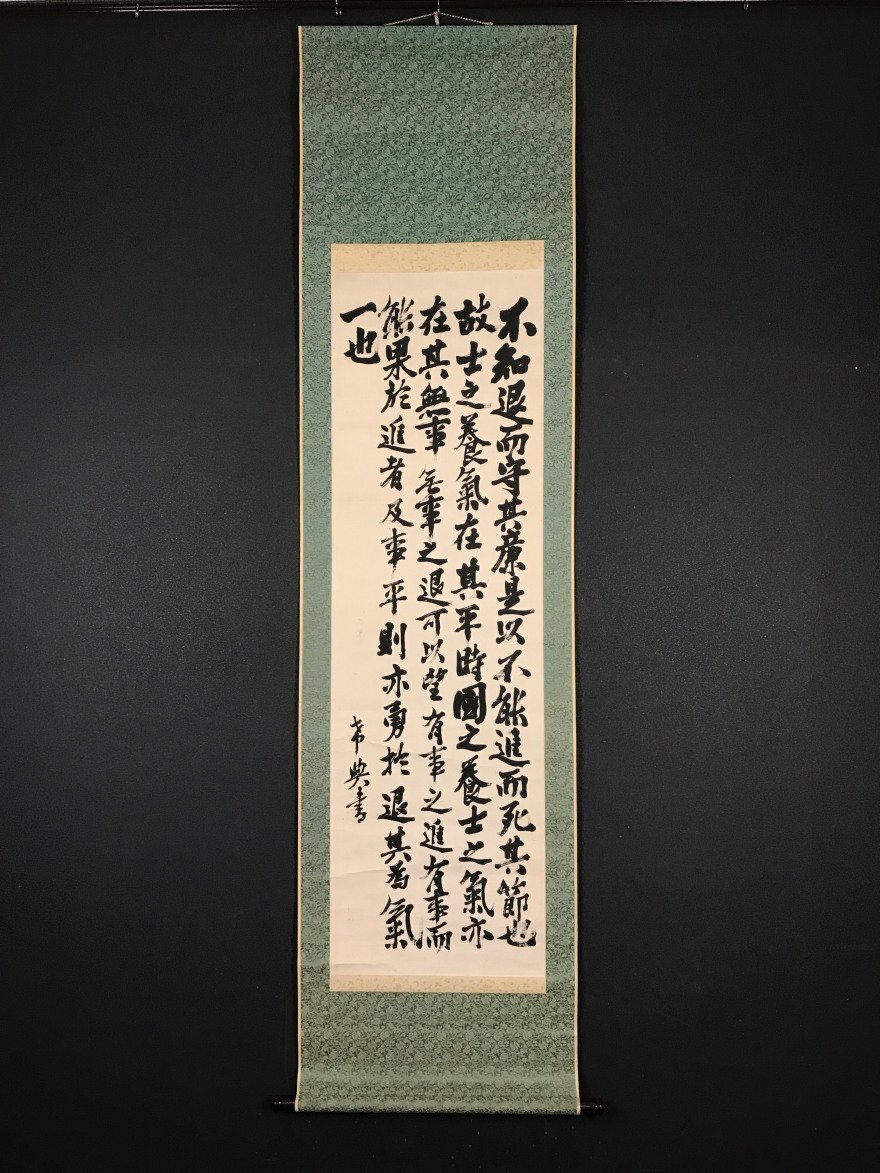 不知退而守其廉是以不能進而死其節也
故士之養氣在其平時國之養士之氣亦
在其無事無事之退可以望有事之進有事而
能果於進者及事平則亦勇於退其為氣
一也
希典書